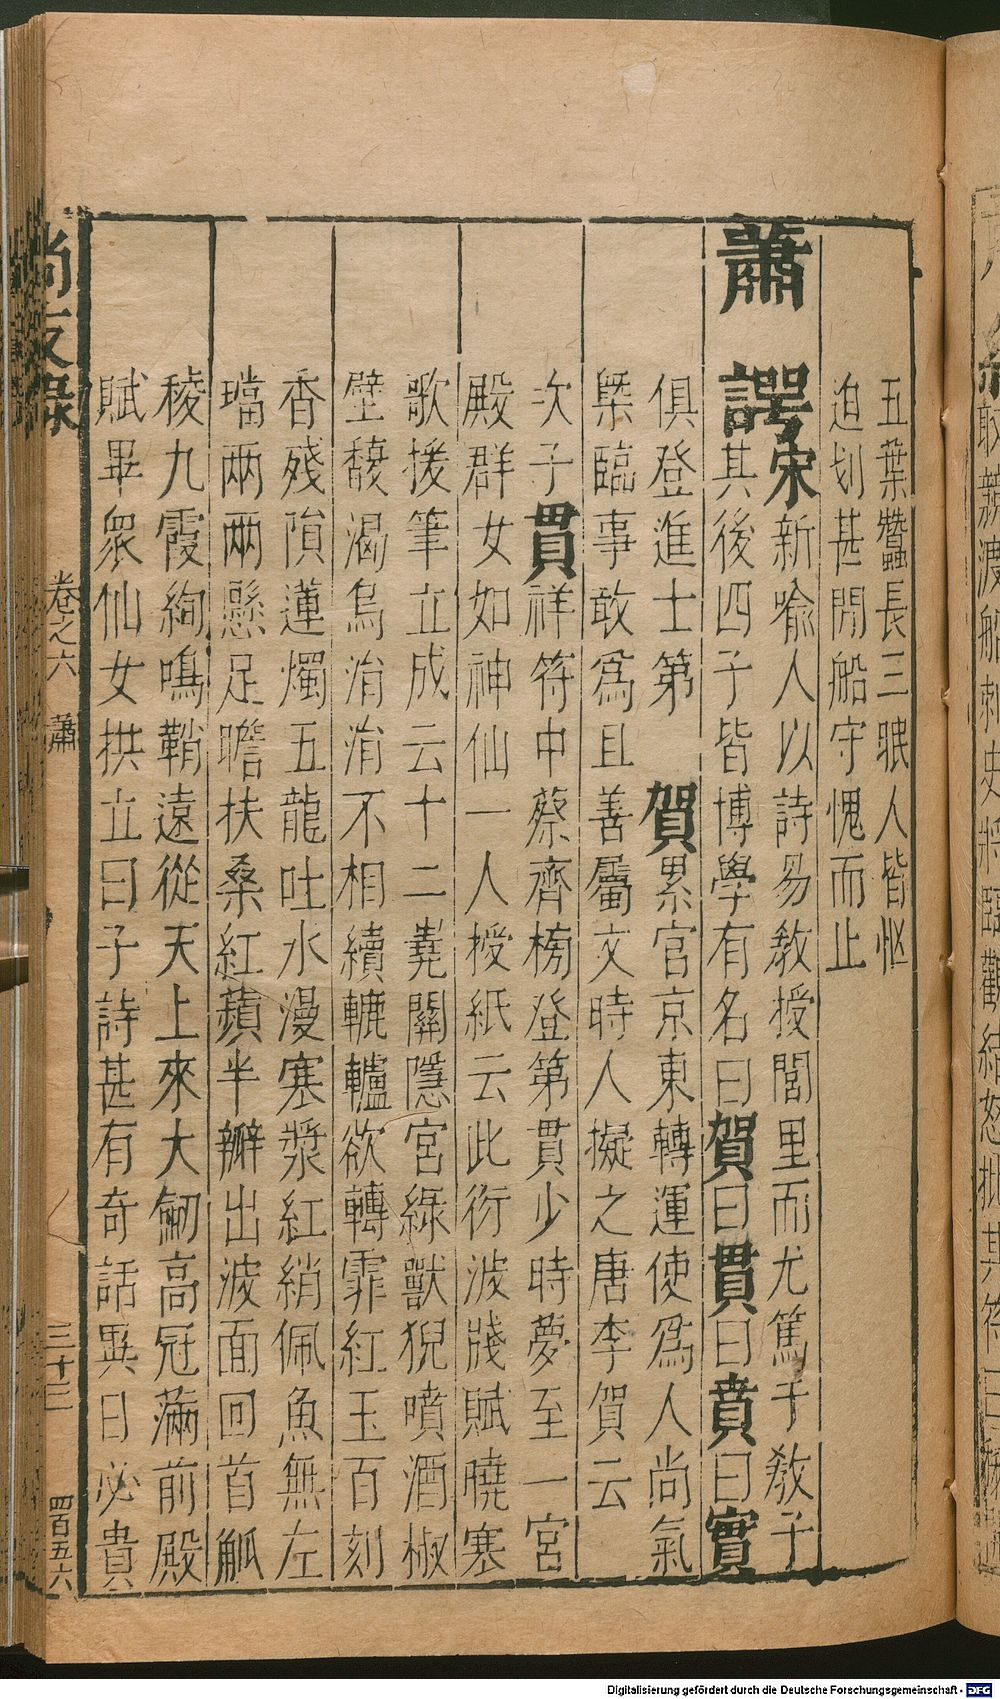 五葉蠶長三眠人皆怄
迫划甚閒船守愧而止
蕭諤宋新喻人以詩易教授閭里而尤篤于教子
其後四子皆博學有名曰賀曰貫曰賁曰實
俱登進士第　賀累官京東轉運使爲人尚氣
槩臨事敢爲且善屬文時人擬之唐李賀云
次子貫祥符中蔡齊榜登第貫少時夢至一宮
殿群女如神仙一人授紙云此衍波牋賦曉塞
歌援筆立成云十二嶤關隱宮綠獸猊噴酒椒
壁馥渴烏涓涓不相續轆轤欲轉霏紅玉百刻
香殘隕蓮燭五龍吐水漫寒漿紅綃佩魚無左
璫兩兩懸足瞻扶桑紅蘋半瓣出波面回首觚
稜九霞絢鳴鞘遠從天上來大劒高冠滿前殿
賦畢衆仙女拱立曰子詩甚有奇話異日必貴
尚友錄
卷之六　蕭
三十三
四百五六
Digitalisierung gefördert durch die Deutsche Forschungsgemeinschaft - DFG